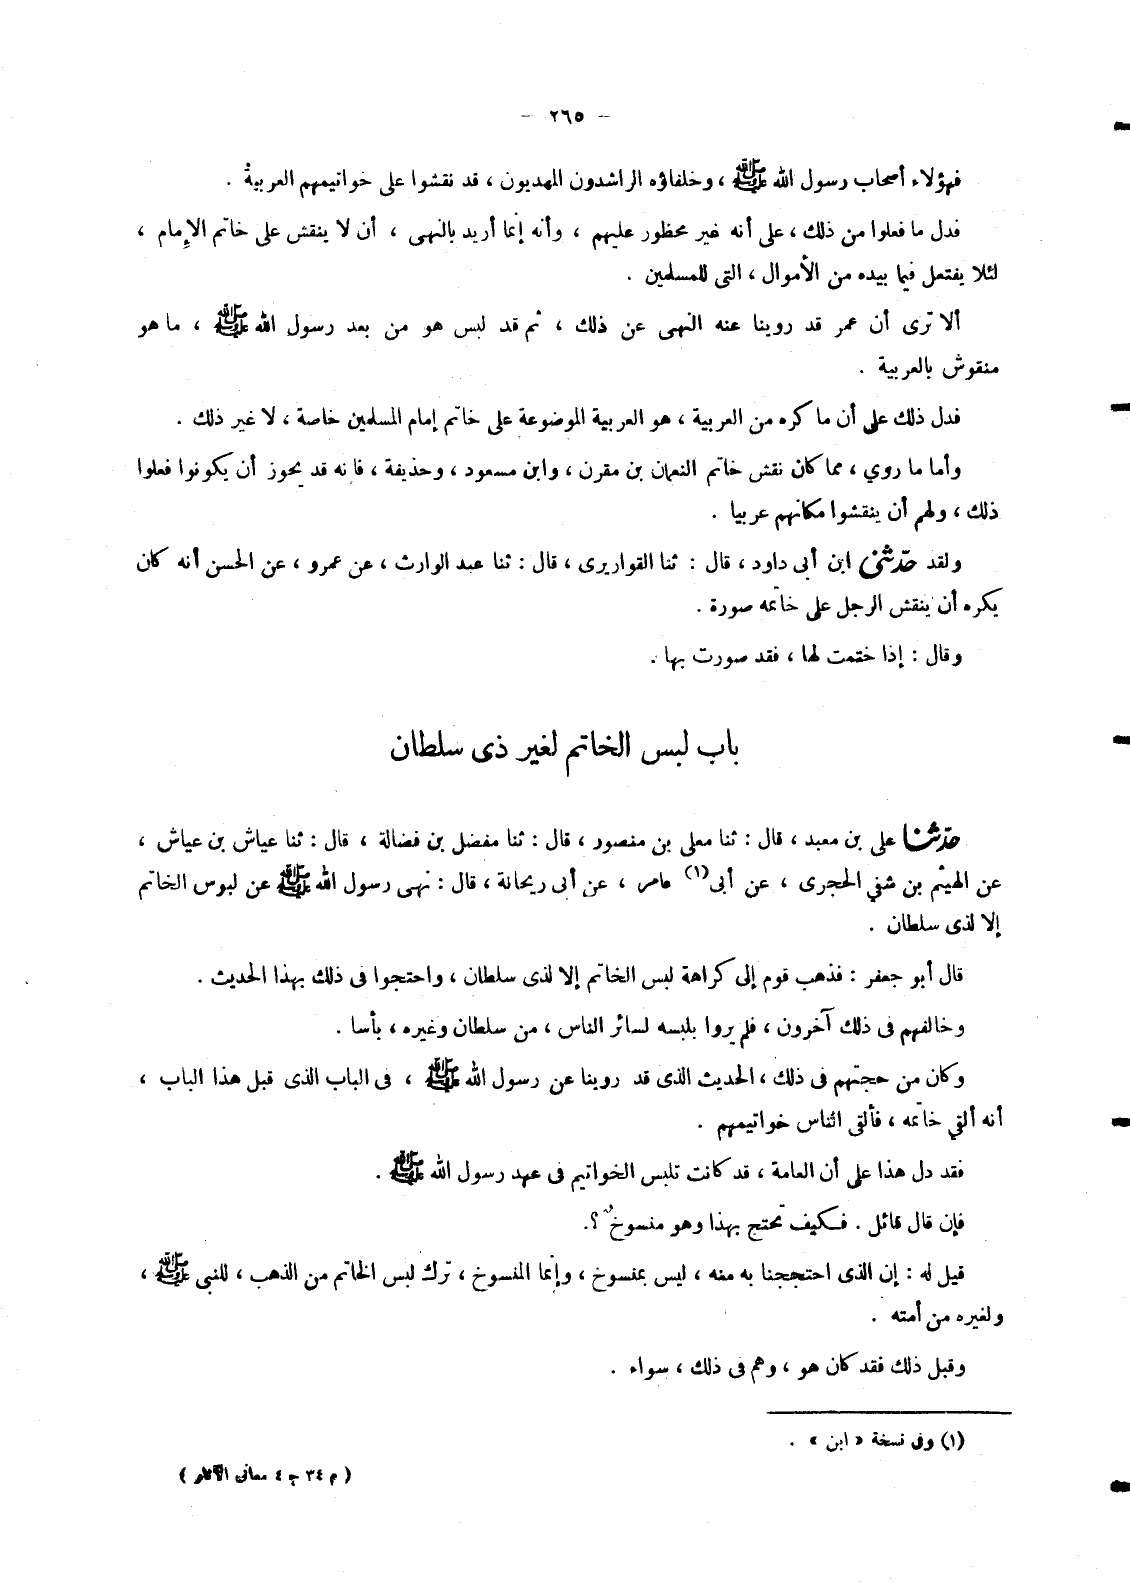 - ٢٦٥ -
فهؤلاء أصحاب رسول الله ﷺ ، وخلفاؤه الراشدون المهديون ، قد نقشوا على خواتيمهم العربية .
فدل ما فعلوا من ذلك ، على أنه غير محظور عليهم ، وأنه إنما أريد بالنهى ، أن لا ينقش على خاتم الإمام ،
لئلا يفتعل فيما بيده من الأموال ، التى للمسلمين .
ألا ترى أن عمر قد روينا عنه النهى عن ذلك ، ثم قد لبس هو من بعد رسول الله ﷺ ، ما هو
منقوش بالعربية .
فدل ذلك على أن ما كره من العربية ، هو العربية الموضوعة على خاتم إمام المسلمين خاصة ، لا غير ذلك .
وأما ما روي ، مما كان نقش خاتم النعمان بن مقرن ، وابن مسعود ، وحذيفة ، فانه قد يجوز أن يكونوا فعلوا
ذلك ، ولهم أن ينقشوا مكانهم عربيا .
ولقد حدّثنى ابن أبى داود ، قال : ثنا القواريرى ، قال : ثنا عبد الوارث ، عن عمرو ، عن الحسن أنه كان
يكره أن ينقش الرجل على خاتمه صورة .
وقال : إذا ختمت لها ، فقد صورت بها .
باب لبس الخاتم لغير ذى سلطان
حدّثنا على بن معبد ، قال : ثنا معلى بن منصور ، قال : ثنا مفضل بن فضالة ، قال : ثنا عياش بن عياش ،
عن الهيثم بن شفي الحجرى ، عن أبى (١) عامر ، عن أبى ريحانة ، قال : نهى رسول الله ﷺ عن لبوس الخاتم
إلا لذى سلطان .
قال أبو جعفر : فذهب قوم إلى كراهة لبس الخاتم إلا لذى سلطان ، واحتجوا فى ذلك بهذا الحديث .
وخالفهم فى ذلك آخرون ، فلم يروا بلبسه لسائر الناس ، من سلطان وغيره ، بأسا .
وكان من حجتهم فى ذلك ، الحديث الذى قد روينا عن رسول الله ﷺ ، فى الباب الذى قبل هذا الباب ،
أنه ألقي خاتمه ، فألقى الناس خواتيمهم .
فقد دل هذا على أن العامة ، قد كانت تلبس الخواتيم فى عهد رسول الله ﷺ .
فإن قال قائل . فكيف تحتج بهذا وهو منسوخ ؟.
قيل له : إن الذى احتججنا به منه ، ليس بمنسوخ ، وإنما المنسوخ ، ترك لبس الخاتم من الذهب ، للنبى ﷺ ،
ولغيره من أمته .
وقبل ذلك فقد كان هو ، وهم فى ذلك ، سواء .
(١) وفى نسخة « ابن » .
( م ٣٤ ج ٤ معانى الآثار )